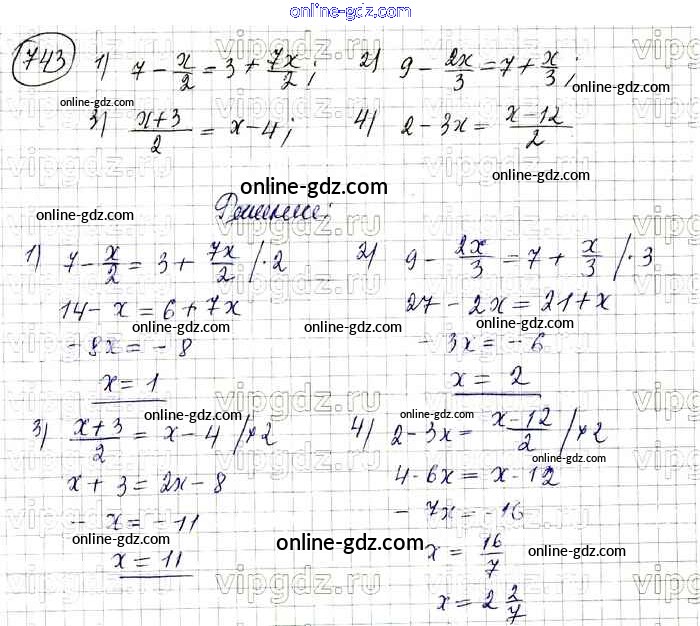 online-gdz.com
743 1) 7 - x/2 = 3 + 7x/2; 2) 9 - 2x/3 = 7 + x/3;
online-gdz.com
online-gdz.com
3) (x+3)/2 = x - 4; 4) 2 - 3x = (x-12)/2
online-gdz.com
online-gdz.com
online-gdz.com
online-gdz.com
Решение:
online-gdz.com
1) 7 - x/2 = 3 + 7x/2 /·2 2) 9 - 2x/3 = 7 + x/3 /·3
14 - x = 6 + 7x 27 - 2x = 21 + x
online-gdz.com
online-gdz.com
online-gdz.com
-8x = -8 -3x = -6
x = 1 x = 2
online-gdz.com
online-gdz.com
online-gdz.com
3) (x+3)/2 = x - 4 /×2 4) 2 - 3x = (x-12)/2 /×2
online-gdz.com
x + 3 = 2x - 8 4 - 6x = x - 12
- x = -11 -7x = -16
online-gdz.com
online-gdz.com
online-gdz.com
x = 11 x = 16/7
x = 2 2/7